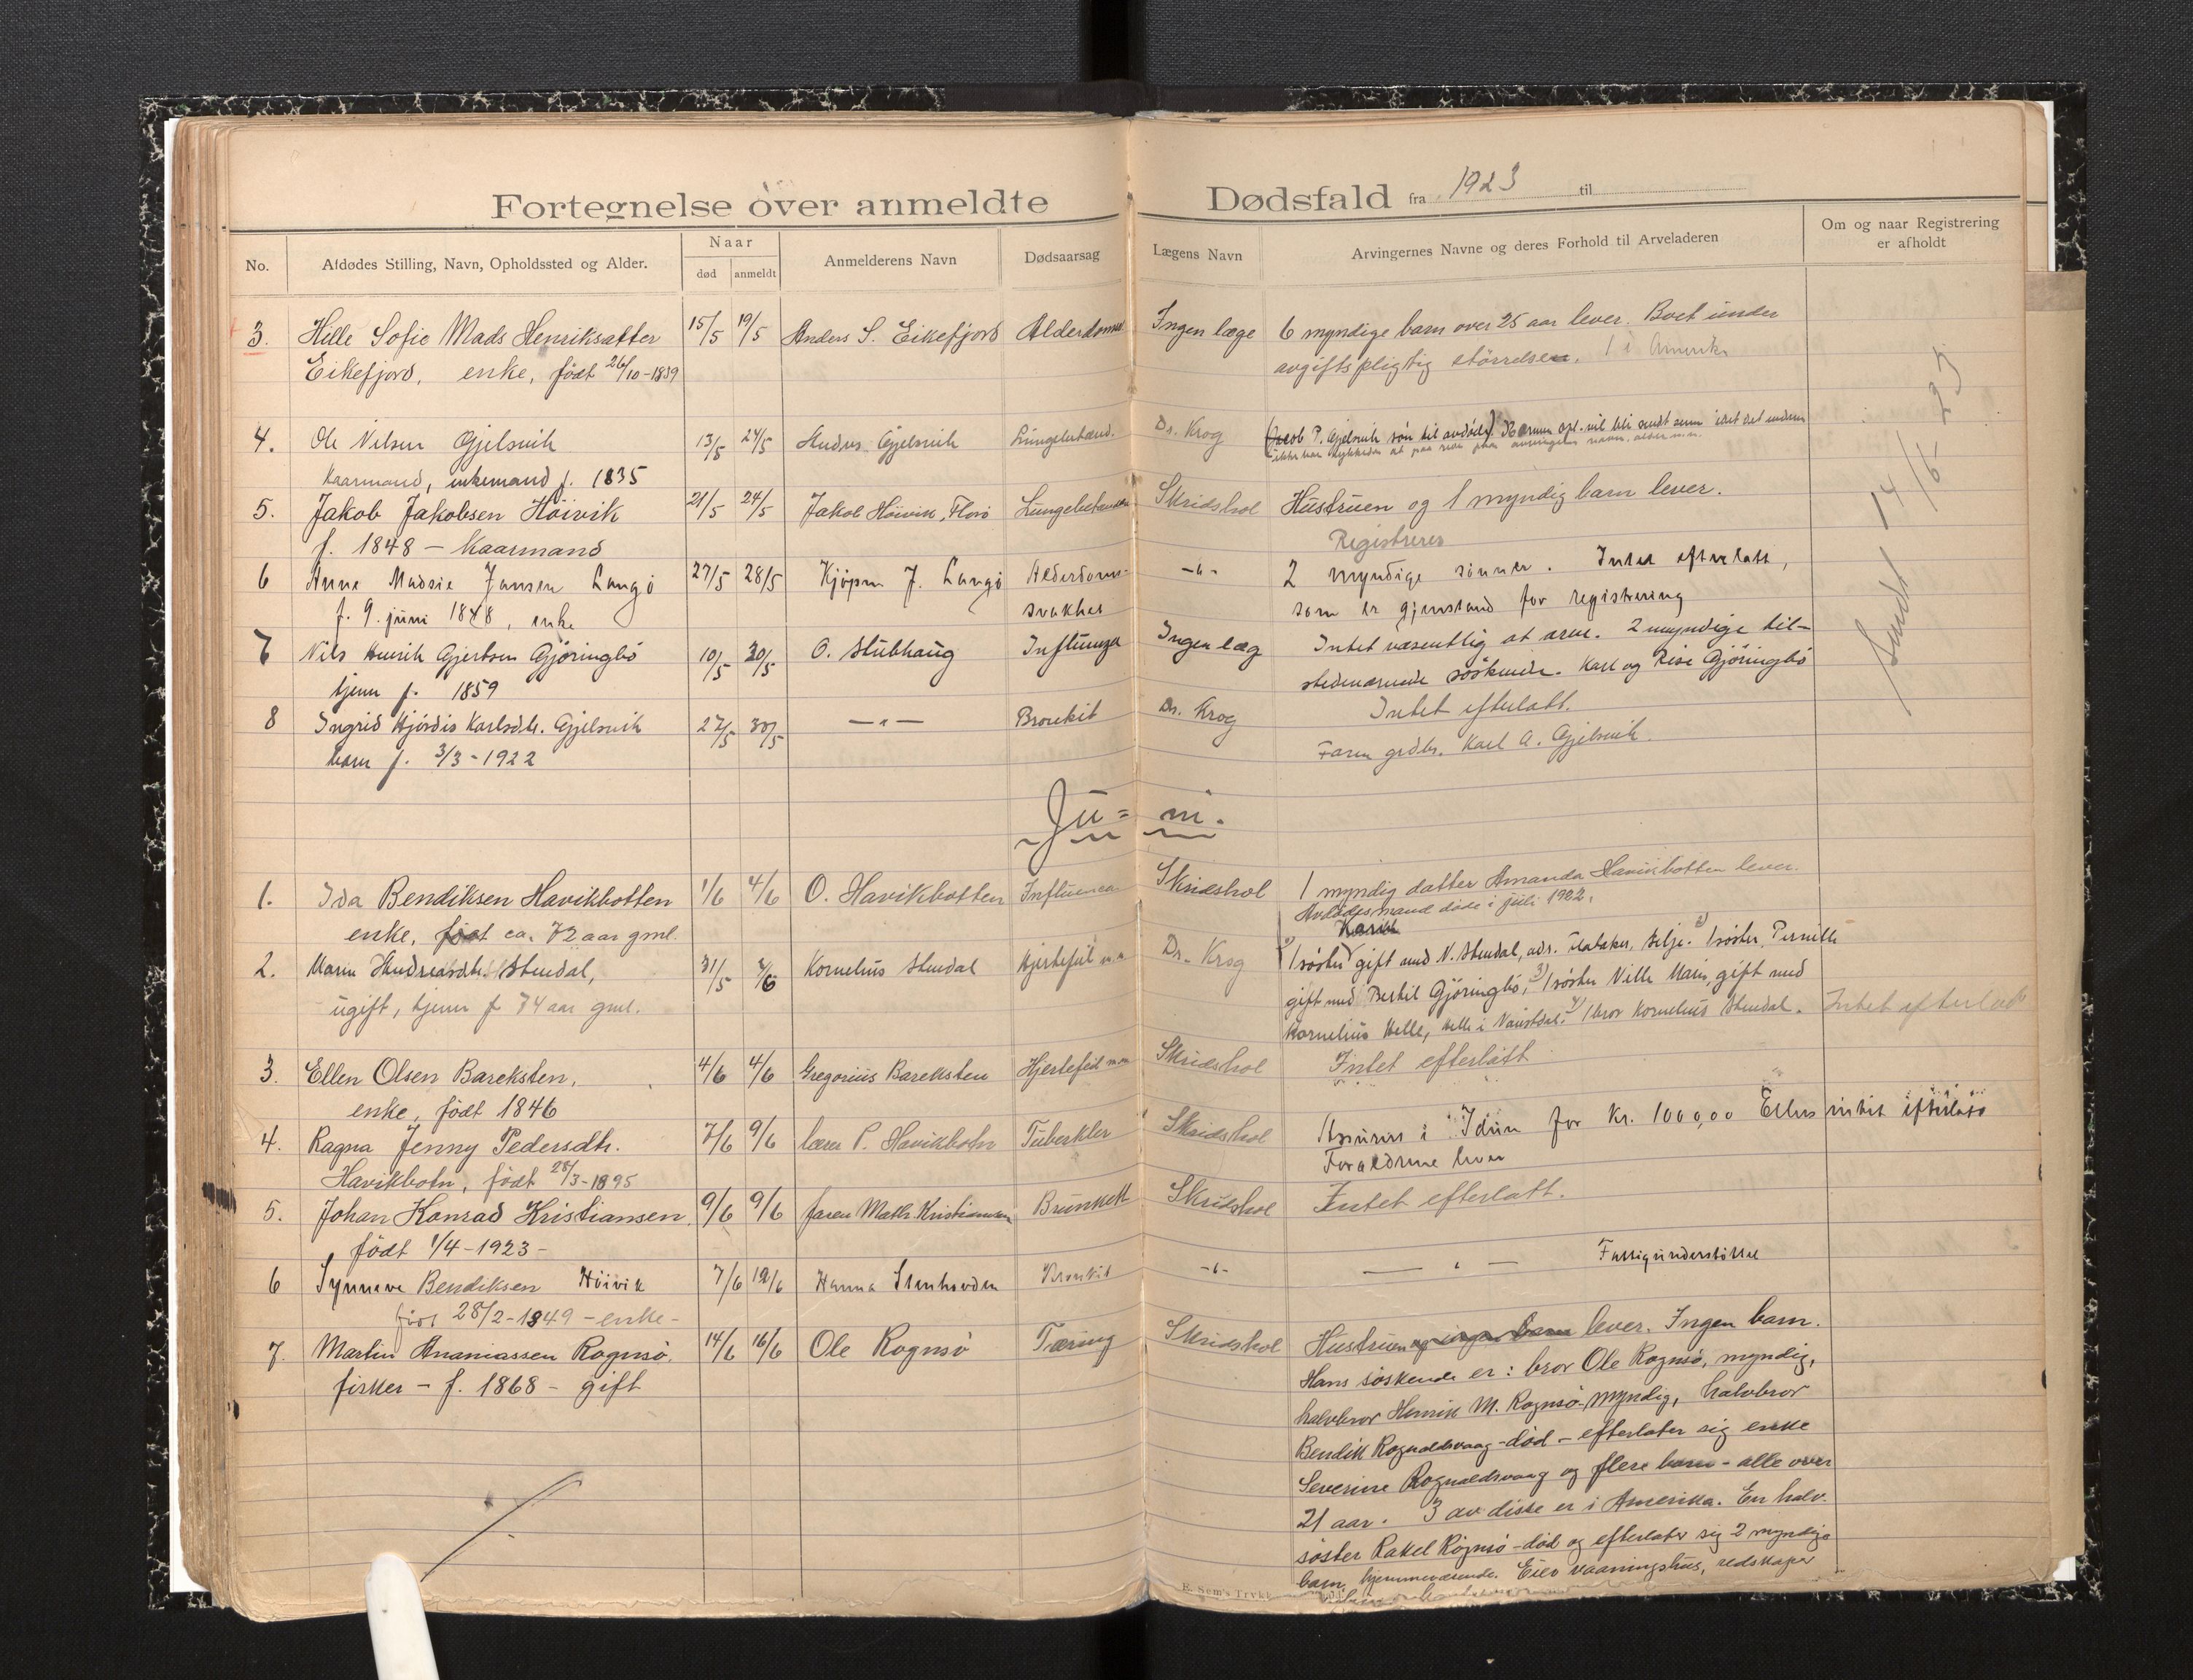 Fortegnelse over anmeldte Dødsfald fra 1923 til
No. Afdødes Stilling, Navn, Opholdssted og Alder. Naar død anmeldt Anmelderens Navn Dødsaarsag Lægens Navn Arvingernes Navne og deres Forhold til Arveladeren Om og naar Registrering er afholdt
3. Hille Sofie Mads Henriksatter 15/5 19/5 Anders S. Eikefjord Alderdoms Ingen læge 6 myndige barn over 25 aar lever. Boet under
Eikefjord, enke, født 26/10-1839 avgiftspligtig størrelse. 1 i Amerika
4. Ole Nilsen Gjelsvik 13/5 24/5 Gjelsvik Lungebetænd. Dr. Krog (Jacob P. Gjelsvik søn til avdøde) opl. vil bli sendt
Kaarmand, enkemand f. 1835
5. Jakob Jakobsen Höivik 21/5 24/5 Jakob Höivik, Florö Lungebetænd Skridshol Hustruen og 1 myndig barn lever.
f. 1848 - Kaarmand Registreres
6 Anne Madsie Jansen Langö 27/5 28/5 J. Langö Alderdoms- -"- 2 myndige sönner. Intet efterlatt,
f. 9. juni 1848, enke svakhet som er gjenstand for registrering
7 Nils Henrik Gjertsen Gjöringbö 10/5 30/5 O. Stubhaug Influenza Ingen læg Intet væsentlig at arve. 2 myndige til-
tjener f. 1859 stedeværende söskende. Karl og Gjöringbö
8 Ingrid Hjördis Karlsdtr. Gjelsvik 27/5 30/5 -"- Bronkit Dr. Krog Intet efterlatt.
barn f. 3/3-1922 Faren grdbr. Karl A. Gjelsvik.
Sendt 14/6-23
Ju = ni.
1. Ida Bendiksen Havikbotten 1/6 4/6 O. Havikbotten Influenca Skridshol 1 myndig datter Amanda Havikbotten lever.
enke, født ca. 72 aar gml. Avdödes mand döde i juli 1922.
Karie
2. Marie Andreasdtr. Stendal, 31/5 2/6 Kornelius Stendal Hjertefeil m.m Dr. Krog 1) 1 söster gift med N. Stendal, adr. 2) 1 söster, Pernille
ugift, tjener f 74 aar gml. gift med Bertil Gjöringbö, 3) 1 söster Ville Marie, gift med
Kornelius Helle, Helle i Naustdal. 4) 1 bror Kornelius Stendal. Intet efterlatt
3. Ellen Olsen Bareksten, 4/6 4/6 Gregorius Bareksten Hjertefeil m.m Skridshol Intet efterlatt
enke, født 1846
4. Ragna Jenny Pedersdtr. 7/6 9/6 lærer P. Havikbotn Tuberkler Skridshol i Idun for Kr. 1000,00 Ellers intet efterlatt
Havikbotn, født 28/3-1895 Forældrene lever
5. Johan Konrad Kristiansen 9/6 9/6 faren Math. Kristiansen Brunkett Skridshol Intet efterlatt.
født 1/4-1923-
6 Synneve Bendiksen Höivik 7/6 12/6 Hanna Stenhovden Bronkit -"- -"- Fattigunderstöttet
född 28/2-1849-enke-
7. Martin Ananiassen Rognsö. 14/6 16/6 Ole Rognsö Tæring Skridshol Hustruen og ingen barn lever. Ingen barn.
fisker - f. 1868 - gift Hans söskende er: bror Ole Rognsö, myndig,
halvbror Henrik M. Rognsö-myndig, halvbror
Bendik Rognaldsvaag-död - efterlater sig enke
Severine Rognaldsvaag og flere barn - alle over
21 aar. 3 av disse er i Amerika. En halv-
söster Rakel Rognsö-död og efterlater sig 2 myndige
barn, hjemmeværende. Eier vaaningshus, redskaper
E. Sem's Trykk